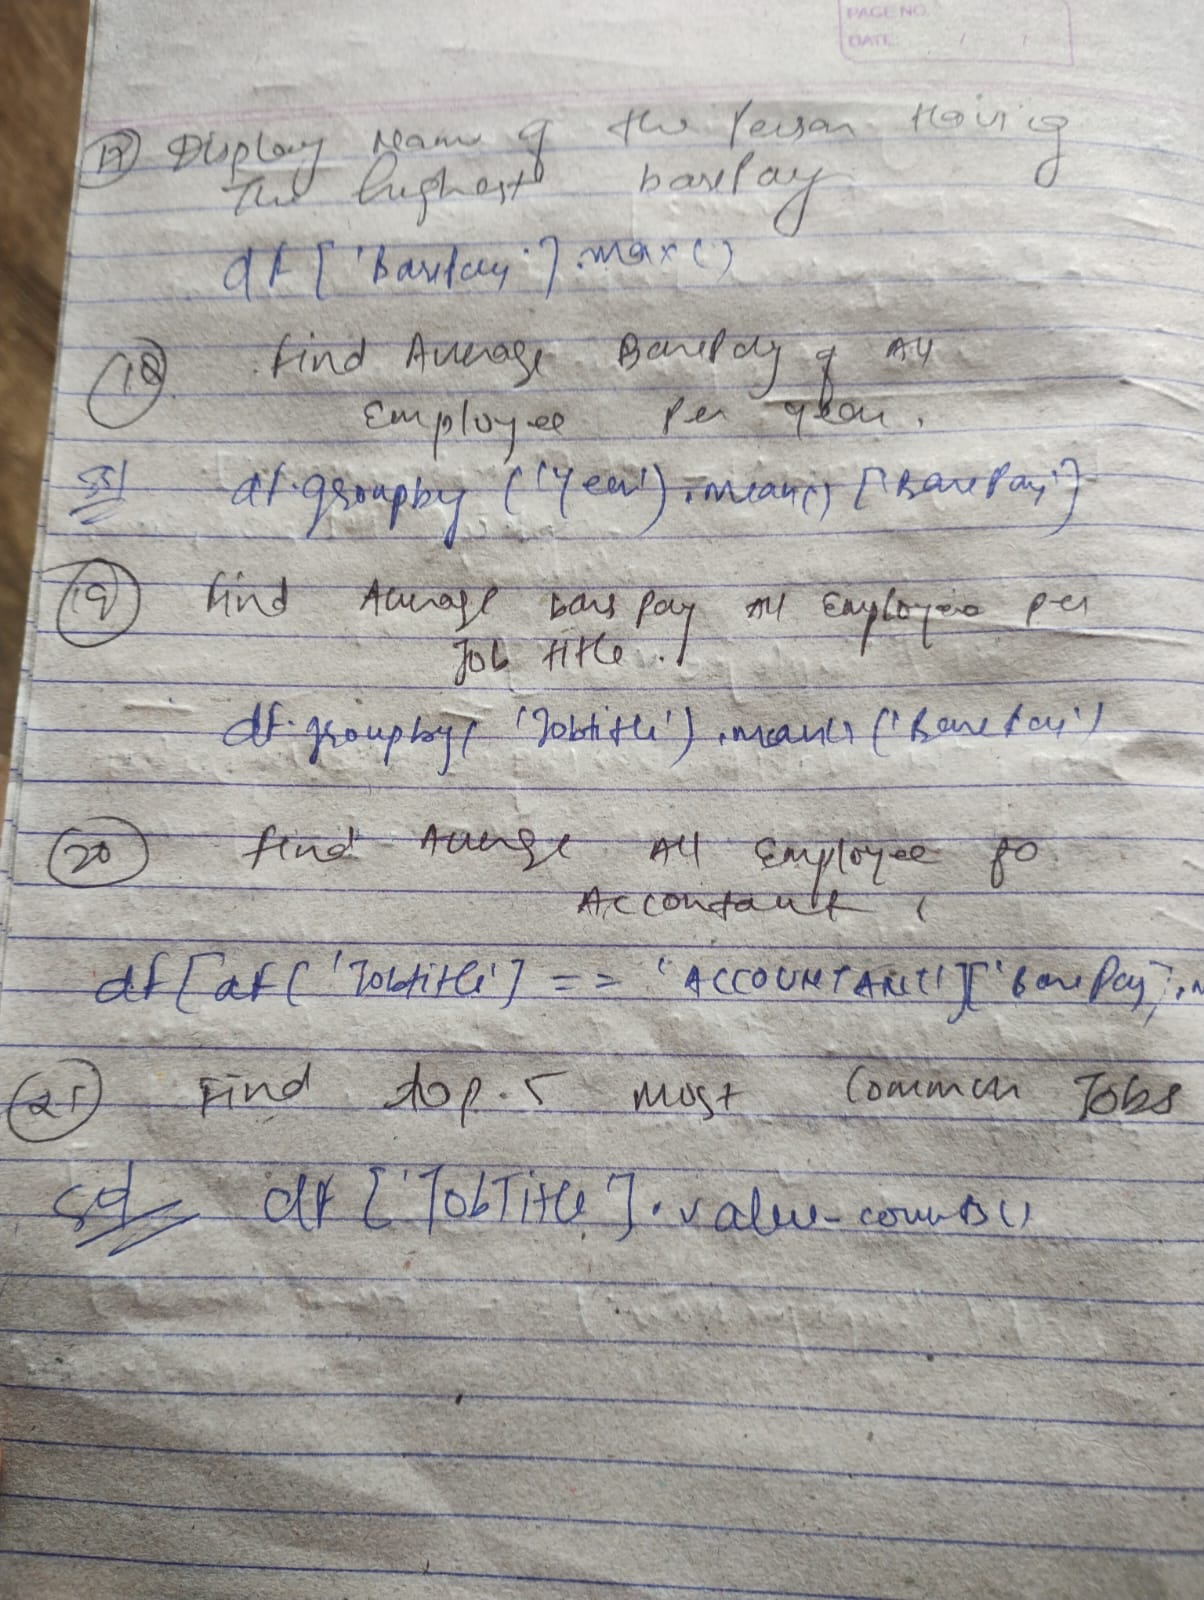 PAGE NO.
DATE: / /
17 Display Name of the Person Having
The highest basePay
df['BasePay'].max()
18 find Average BasePay of All
Employee Per year.
Sol df.groupby('Year').mean()['BasePay']
19 find Average base pay All Employee per
Job title.
df.groupby('Jobtitle').mean()('BasePay')
20 find Average All Employee fo
Accontant
df[df['Jobtitle'] == 'ACCOUNTANT']['BasePay'].m
21 Find top.5 most Common Jobs
Sol df['JobTitle'].value-counts()